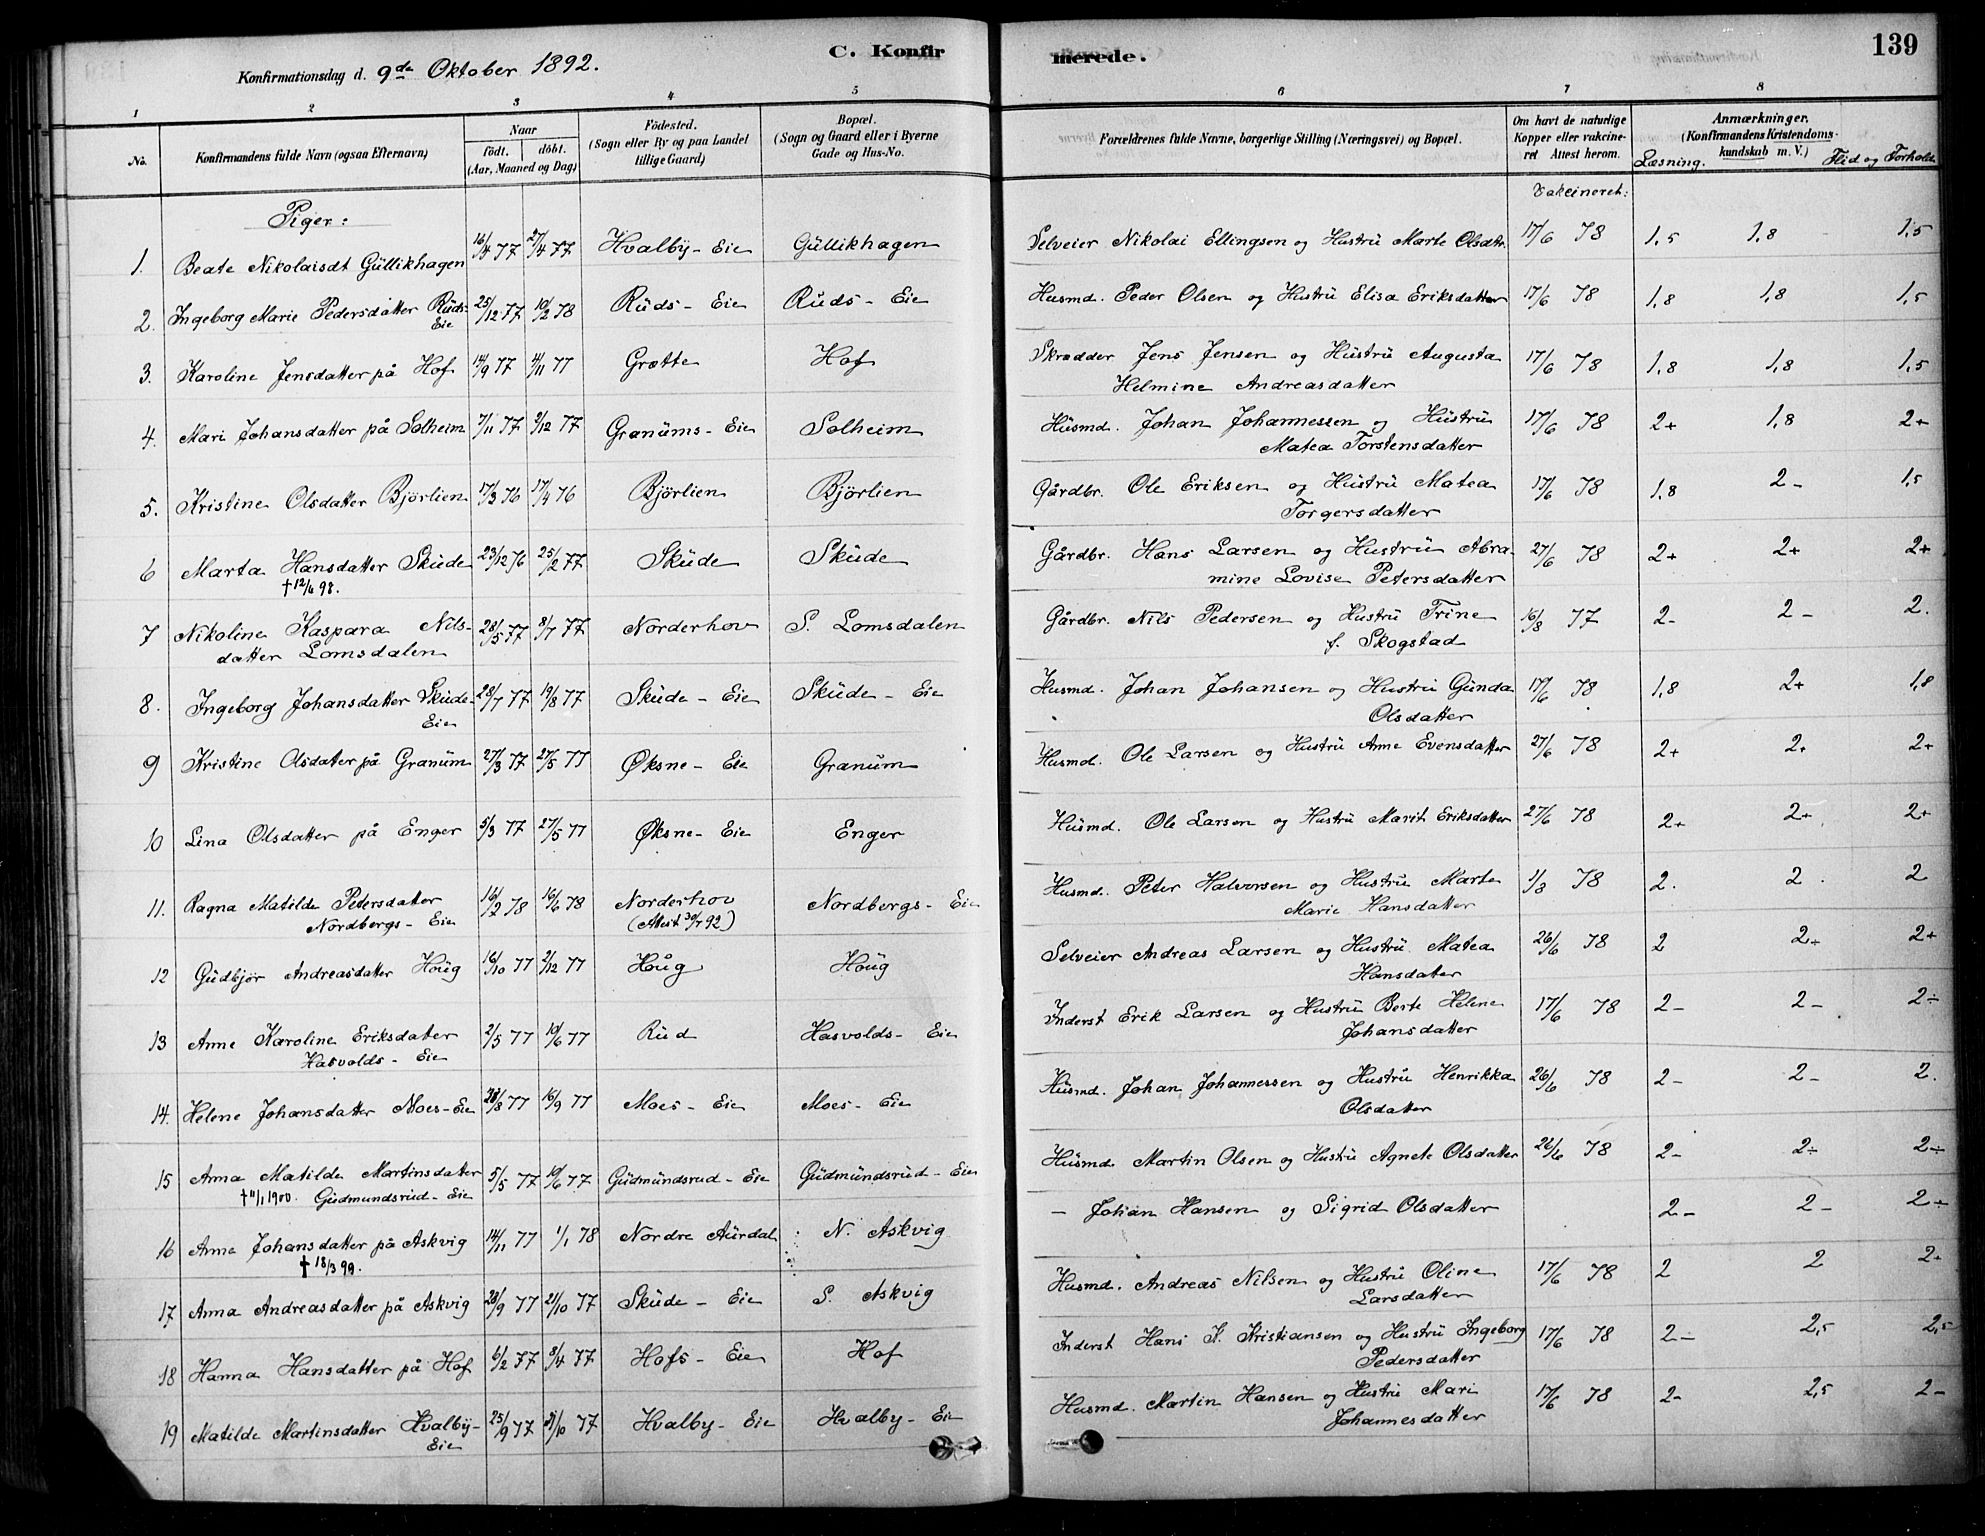 C. Konfirmerede.
139
Konfirmationsdag d. 9de Oktober 1892.
1 2 3 4 5 6 7 8
No.
Konfirmandens fulde Navn (ogsaa Efternavn)
Naar
født. døbt.
(Aar, Maaned og Dag)
Fødested.
(Sogn eller By og paa Landet
tillige Gaard)
Bopæl.
(Sogn og Gaard eller i Byerne
Gade og Hus-No.
Forældrenes fulde Navne, borgerlige Stilling (Næringsvei) og Bopæl.
Om havt de naturlige
Kopper eller vakcine-
ret Attest herom.
Anmærkninger.
(Konfirmandens Kristendoms-
kundskab m. V.)
Læsning. Flid og Forhold.
Vakcineret:
Piger:
1. Beate Nikolaisdt Gullikhagen 16/4 77 27/4 77 Hvalby-Eie Gullikhagen Selveier Nikolai Ellingsen og Hustru Marte Olsdtr. 17/6 78 1,5 1,8 1,5
2. Ingeborg Marie Pedersdatter Ruds- 25/12 77 10/2 78 Ruds-Eie Ruds-Eie Husmd. Peder Olsen og Hustru Elisa Eriksdatter 17/6 78 1,8 1,8 1,5
Eie
3. Karoline Jensdatter på Hof 14/9 77 4/11 77 Grætte Hof Skrædder Jens Jensen og Hustru Augusta 17/6 78 1,8 1,8 1,5
Helmine Andreasdatter
4. Mari Johansdatter på Solheim 7/11 77 2/12 77 Granums-Eie Solheim Husmd. Johan Johannessen og Hustru 17/6 78 2+ 1,8 2+
Matea Torstensdatter
5. Kristine Olsdatter Björlien 17/3 76 17/4 76 Björlien Björlien Gårdbr. Ole Eriksen og Hustru Matea 17/6 78 1,8 2- 1,5
Torgersdatter
6 Marta Hansdatter Skude 23/12 76 25/2 77 Skude Skude Gårdbr. Hans Larsen og Hustru Abra- 27/6 78 2+ 2+ 2+
98. mine Lovise Petersdatter
7 Nikoline Kaspara Nils- 28/5 77 8/7 77 Norderhov S. Lomsdalen Gårdbr. Nils Pedersen og Hustru Trine 16/8 77 2- 2- 2.
datter Lomsdalen f. Skogstad
8. Ingeborg Johansdatter Skude- 28/7 77 19/8 77 Skude-Eie Skude-Eie Husmd. Johan Johansen og Hustru Gunda 17/6 78 1,8 2+ 1,8
Eie Olsdatter
9 Kristine Olsdatter på Granum 27/3 77 27/5 77 Øksne-Eie Granum Husmd. Ole Larsen og Hustru Anne Evensdatter 27/6 78 2+ 2+ 2+
10 Lina Olsdatter på Enger 5/3 77 27/5 77 Øksne-Eie Enger Husmd. Ole Larsen og Hustru Marit Eriksdatter 27/6 78 2+ 2+ 2+
11. Ragna Matilde Pedersdatter 16/2 78 16/6 78 Norderhov Nordbergs-Eie Husmd. Peter Halvorsen og Hustru Marte 1/8 78 2. 2. 2
Nordbergs-Eie (Attest 30/7 92) Marie Hansdatter
12 Gudbjör Andreasdatter Houg 16/10 77 2/12 77 Houg Houg Selveier Andreas Larsen og Hustru Matea 26/6 78 2 2+ 2+
Hansdatter
13 Anne Karoline Eriksdatter 2/5 77 10/6 77 Rud Hasvolds-Eie Inderst Erik Larsen og Hustru Berte Helene 17/6 78 2- 2- 2÷
Hasvolds-Eie Johansdatter
14. Helene Johansdatter Moes-Eie 28/8 77 16/9 77 Moes-Eie Moes-Eie Husmd. Johan Johannessen og Hustru Henrikka 26/6 78 2- 2- 2.
Olsdatter
15 Anna Matilde Martinsdatter 5/5 77 10/6 77 Gudmundsrud-Eie Gudmundsrud-Eie Husmd. Martin Olsen og Hustru Agnete Olsdatter 26/6 78 2- 2÷ 2÷
† 11/1 1900. Gudmundsrud-Eie
16 Anne Johansdatter på Askvig 14/11 77 1/1 78 Nordre Aurdal N. Askvig - Johan Hansen og Sigrid Olsdatter 2- 2- 2÷
† 18/3 99.
17 Anna Andreasdatter på Askvig 28/9 77 21/10 77 Skude-Eie S. Askvig Husmd. Andreas Nilsen og Hustru Oline 17/6 78 2 2 2+
Larsdatter
18 Hanna Hansdatter på Hof 6/2 77 8/4 77 Hofs-Eie Hof Inderst Hans K. Kristiansen og Hustru Ingeborg 17/6 78 2- 2,5 2,5
Pedersdatter
19 Matilde Martinsdatter Hvalby- 25/9 77 10 77 Hvalby-Eie Hvalby-Eie Husmd. Martin Hansen og Hustru Mari 17/6 78 2- 2,5 2-
Eie Johannesdatter